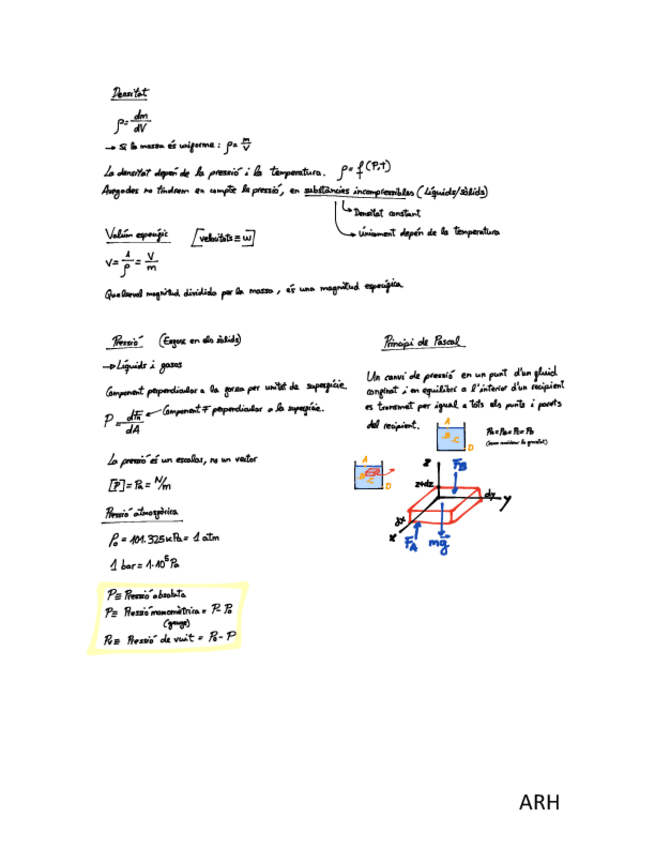 Densitat
ρ = dm/dV
→ Si la massa és uniforme: ρ = m/V
La densitat depèn de la pressió i la temperatura. ρ = f(P,t)
Avegades no tindrem en compte la pressió, en substàncies incompressibles (Líquids/sòlids)
Densitat constant
Únicament depèn de la temperatura
Volum específic [velocitats ≡ w]
v = 1/ρ = V/m
Qualsevol magnitud dividida per la massa, és una magnitud específica
Pressió (Esforç en els sòlids)
→ Líquids i gasos
Component perpendicular a la força per unitat de superfície.
P = dFn/dA ← Component F perpendicular a la superfície.
La pressió és un escalar, no un vector
[P] = Pa = N/m
Pressió atmosfèrica
P₀ = 101.325 kPa = 1 atm
1 bar = 1·10⁵ Pa
P ≡ Pressió absoluta
P ≡ Pressió manomètrica = P - P₀
(gauge)
Pv ≡ Pressió de vuit = P₀ - P
Principi de Pascal
Un canvi de pressió en un punt d'un fluid
confinat i en equilibri a l'interior d'un recipient
es transmet per igual a tots els punts i parets
del recipient.
A
B
C
D
PA = PB = PC = PD
A
B
C
D
z
z+dz
FB
dy
y
dx
x
FA
mg
ARH